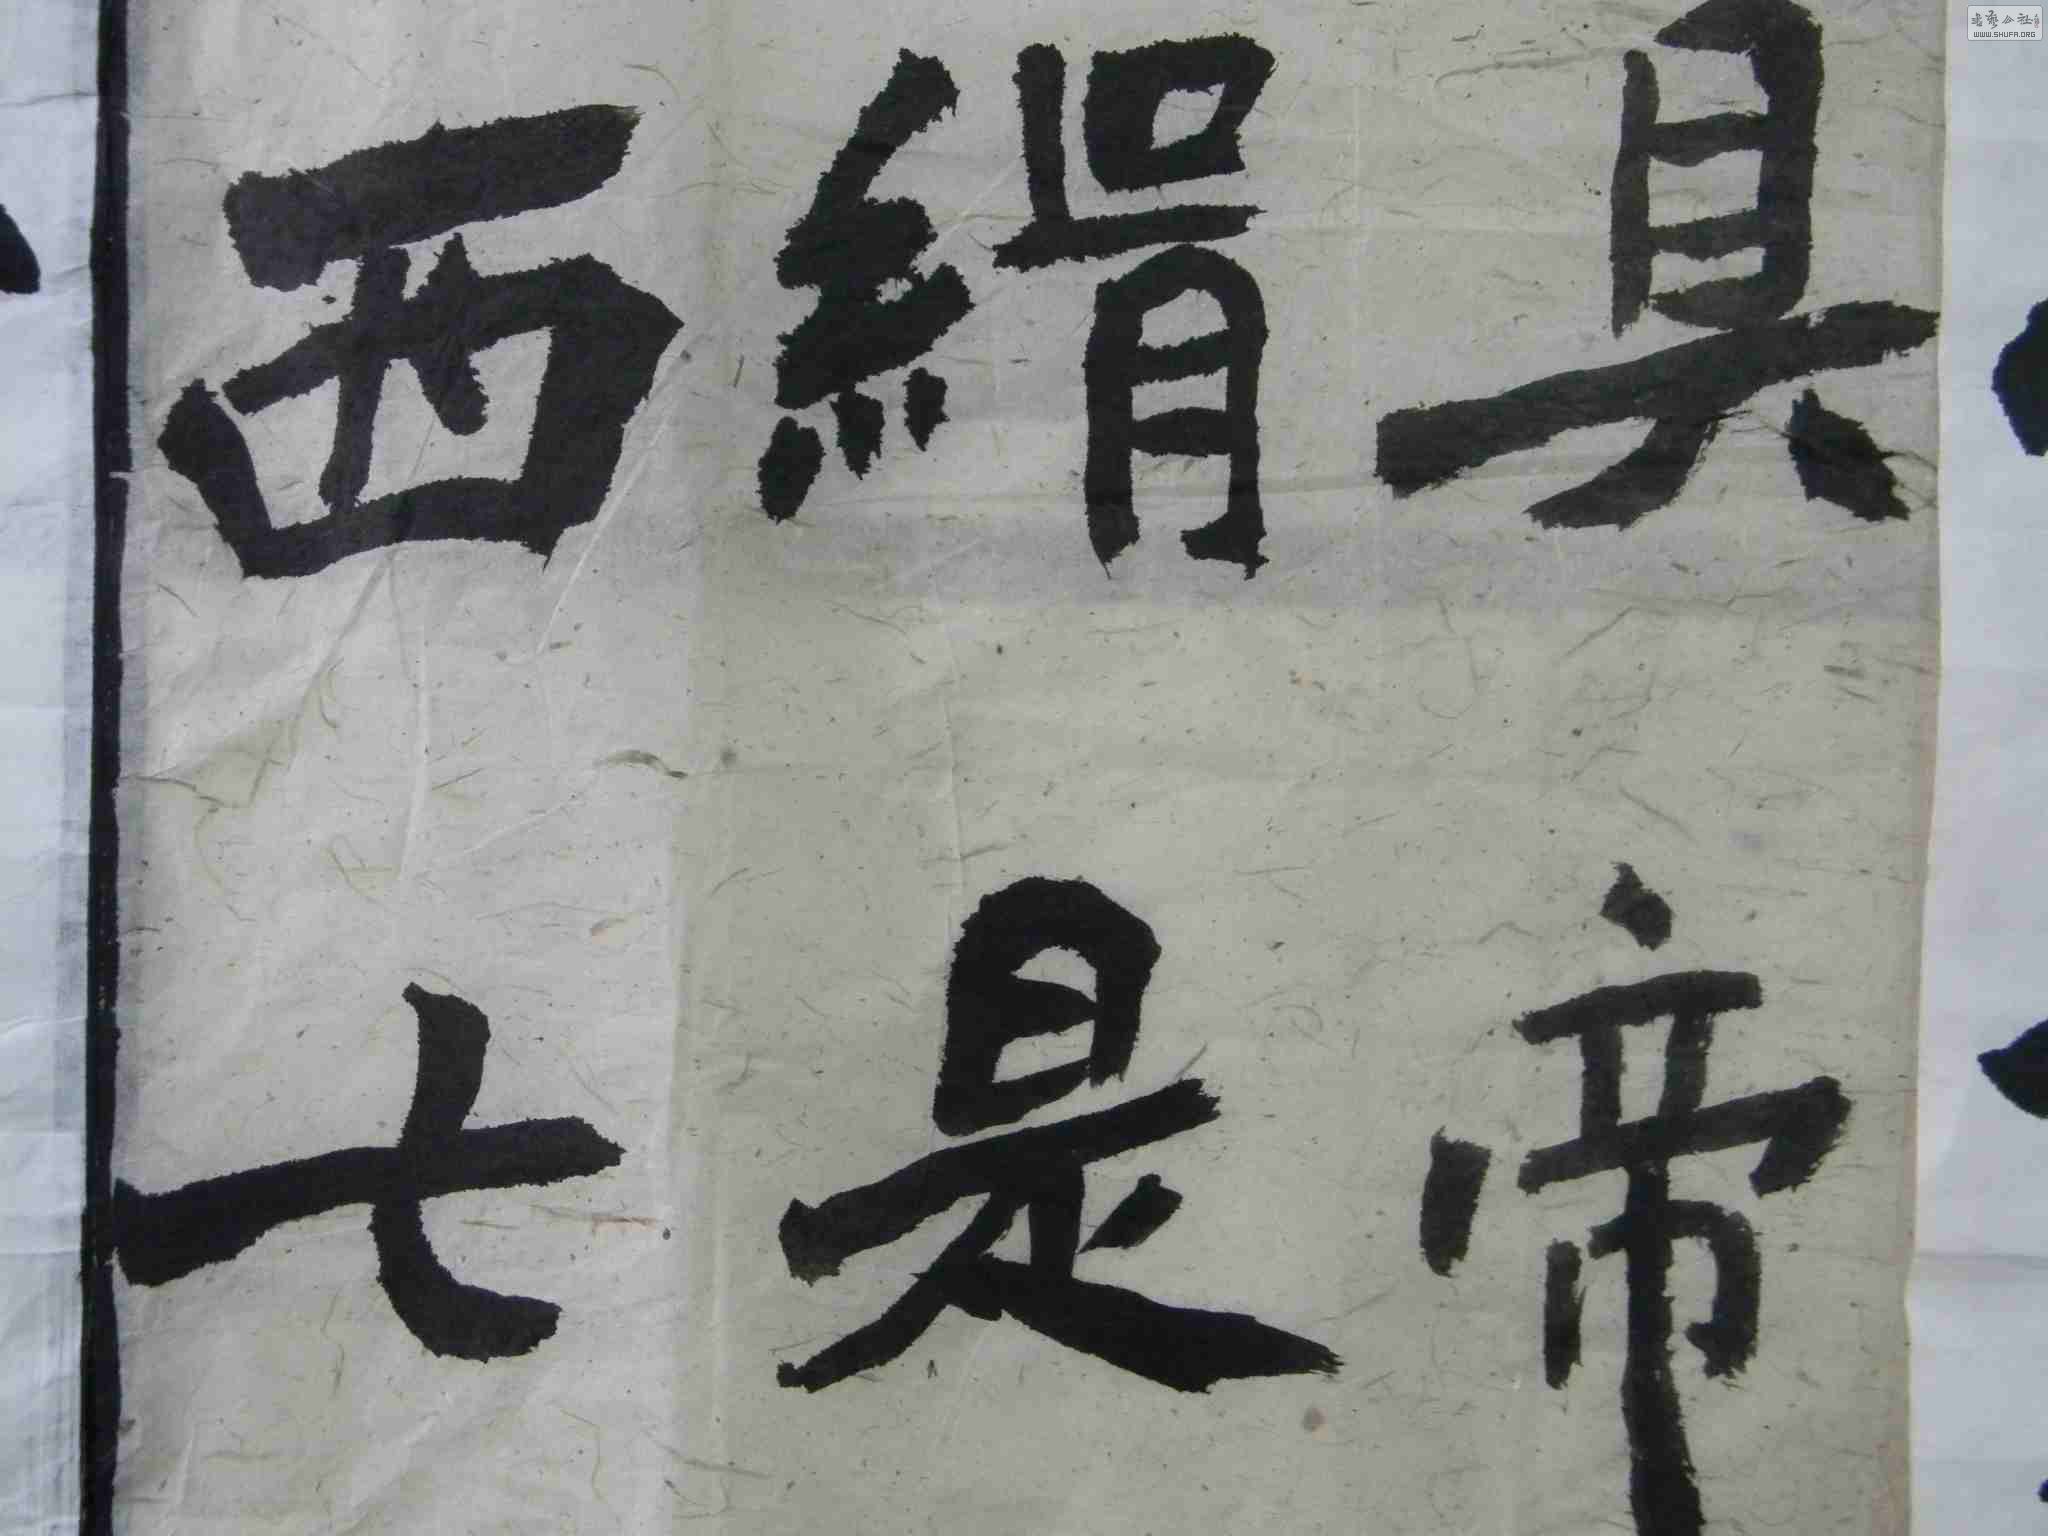 具帝
絹是
西七
书艺公社
WWW.SHUFA.ORG